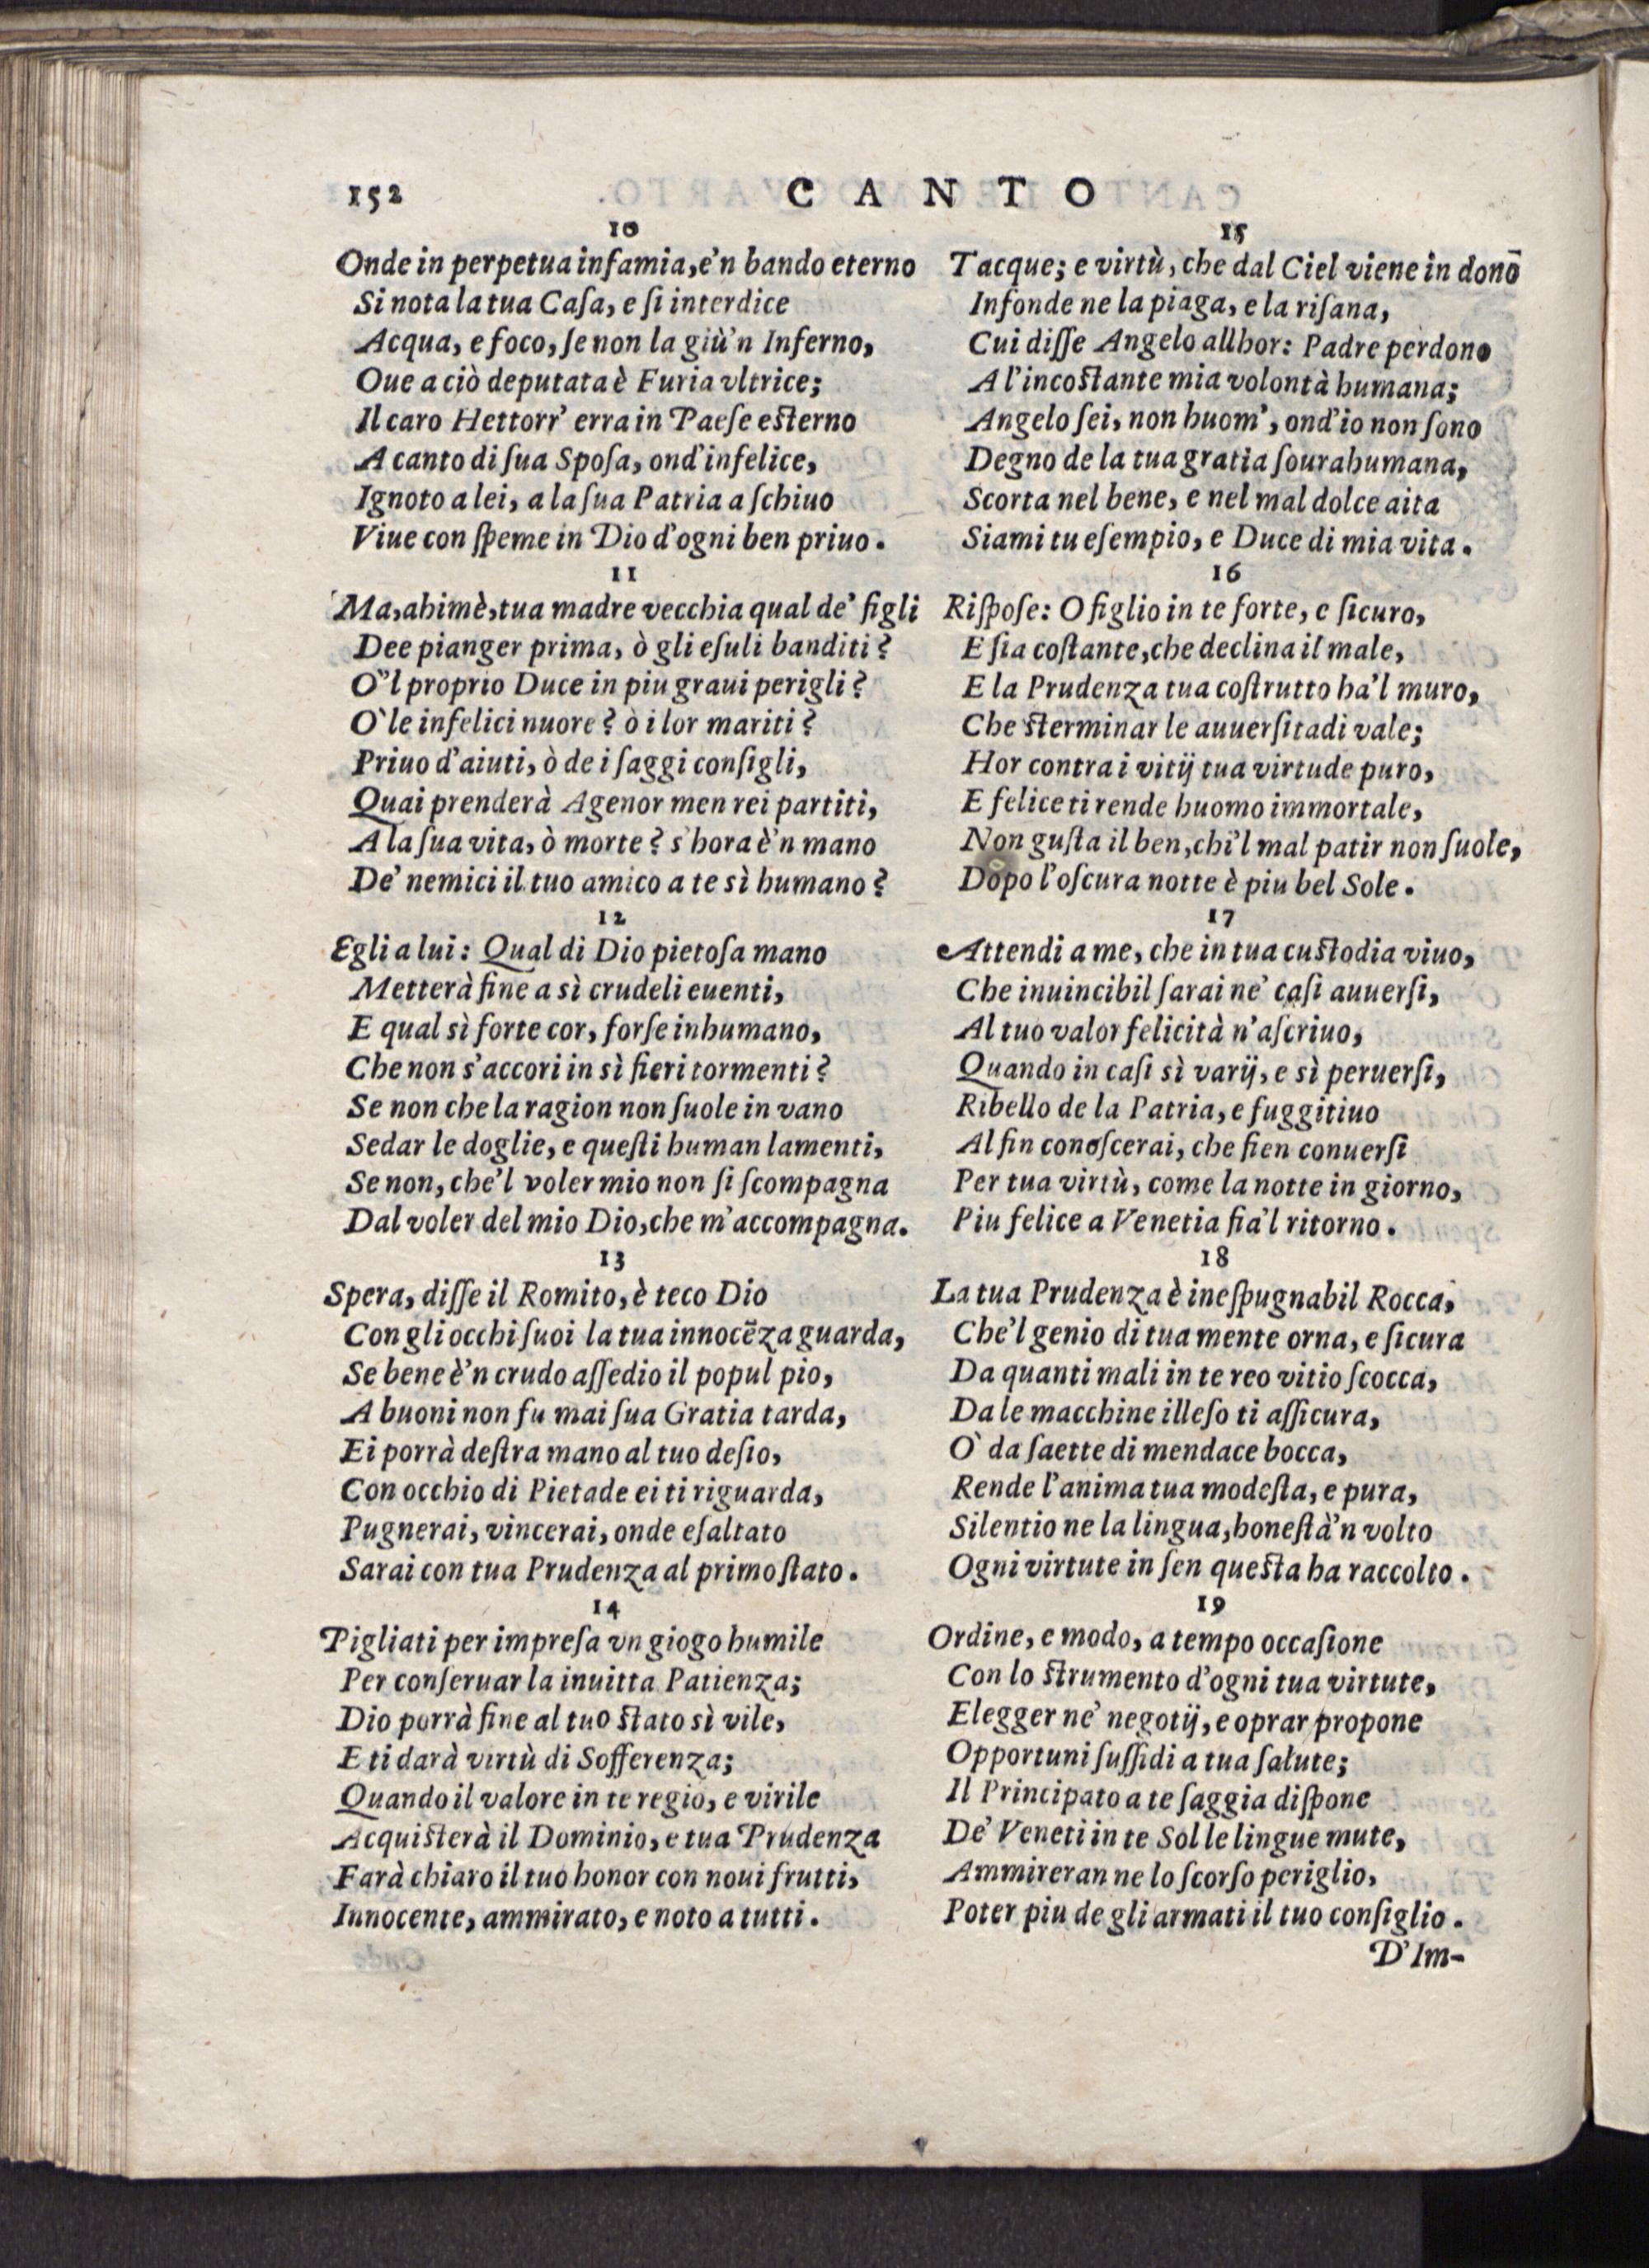 152
CANTO
10
Onde in perpetua infamia, e'n bando eterno
Si nota la tua Caſa, e ſi interdice
Acqua, e foco, ſe non la giù'n Inferno,
Oue a ciò deputata è Furia vltrice;
Il caro Hettorr' erra in Paeſe eſterno
A canto di ſua Spoſa, ond'infelice,
Ignoto a lei, a la ſua Patria a ſchiuo
Viue con ſpeme in Dio d'ogni ben priuo.
11
Ma, ahimè, tua madre vecchia qual de' figli
Dee pianger prima, ò gli eſuli banditi?
O''l proprio Duce in piu graui perigli?
O' le infelici nuore? ò i lor mariti?
Priuo d'aiuti, ò de i ſaggi conſigli,
Quai prenderà Agenor men rei partiti,
A la ſua vita, ò morte? s'hora è'n mano
De' nemici il tuo amico a te sì humano?
12
Egli a lui: Qual di Dio pietoſa mano
Metterà fine a sì crudeli euenti,
E qual sì forte cor, forſe inhumano,
Che non s'accori in sì fieri tormenti?
Se non che la ragion non ſuole in vano
Sedar le doglie, e queſti human lamenti,
Se non, che'l voler mio non ſi ſcompagna
Dal voler del mio Dio, che m'accompagna.
13
Spera, diſſe il Romito, è teco Dio
Con gli occhi ſuoi la tua innocēza guarda,
Se bene è'n crudo aſſedio il popul pio,
A buoni non fu mai ſua Gratia tarda,
Ei porrà deſtra mano al tuo deſio,
Con occhio di Pietade ei ti riguarda,
Pugnerai, vincerai, onde eſaltato
Sarai con tua Prudenza al primo ſtato.
14
Pigliati per impreſa vn giogo humile
Per conſeruar la inuitta Patienza;
Dio porrà fine al tuo ſtato sì vile,
E ti darà virtù di Sofferenza;
Quando il valore in te regio, e virile
Acquiſterà il Dominio, e tua Prudenza
Farà chiaro il tuo honor con noui frutti,
Innocente, ammirato, e noto a tutti.
15
Tacque; e virtù, che dal Ciel viene in donō
Infonde ne la piaga, e la riſana,
Cui diſſe Angelo allhor: Padre perdono
A l'incoſtante mia volontà humana;
Angelo ſei, non huom', ond'io non ſono
Degno de la tua gratia ſourahumana,
Scorta nel bene, e nel mal dolce aita
Siami tu eſempio, e Duce di mia vita.
16
Riſpoſe: O figlio in te forte, e ſicuro,
E ſia coſtante, che declina il male,
E la Prudenza tua coſtrutto ha'l muro,
Che ſterminar le auuerſitadi vale;
Hor contra i vitij tua virtude puro,
E felice ti rende huomo immortale,
Non guſta il ben, chi'l mal patir non ſuole,
Dopo l'oſcura notte è piu bel Sole.
17
Attendi a me, che in tua cuſtodia viuo,
Che inuincibil ſarai ne' caſi auuerſi,
Al tuo valor felicità n'aſcriuo,
Quando in caſi sì varij, e sì peruerſi,
Ribello de la Patria, e fuggitiuo
Al fin conoſcerai, che fien conuerſi
Per tua virtù, come la notte in giorno,
Piu felice a Venetia fia'l ritorno.
18
La tua Prudenza è ineſpugnabil Rocca,
Che'l genio di tua mente orna, e ſicura
Da quanti mali in te reo vitio ſcocca,
Da le macchine illeſo ti aſſicura,
O' da ſaette di mendace bocca,
Rende l'anima tua modeſta, e pura,
Silentio ne la lingua, honeſtà'n volto
Ogni virtute in ſen queſta ha raccolto.
19
Ordine, e modo, a tempo occaſione
Con lo ſtrumento d'ogni tua virtute,
Elegger ne' negotij, e oprar propone
Opportuni ſuſſidi a tua ſalute;
Il Principato a te ſaggia diſpone
De' Veneti in te Sol le lingue mute,
Ammireran ne lo ſcorſo periglio,
Poter piu de gli armati il tuo conſiglio.
D'Im-